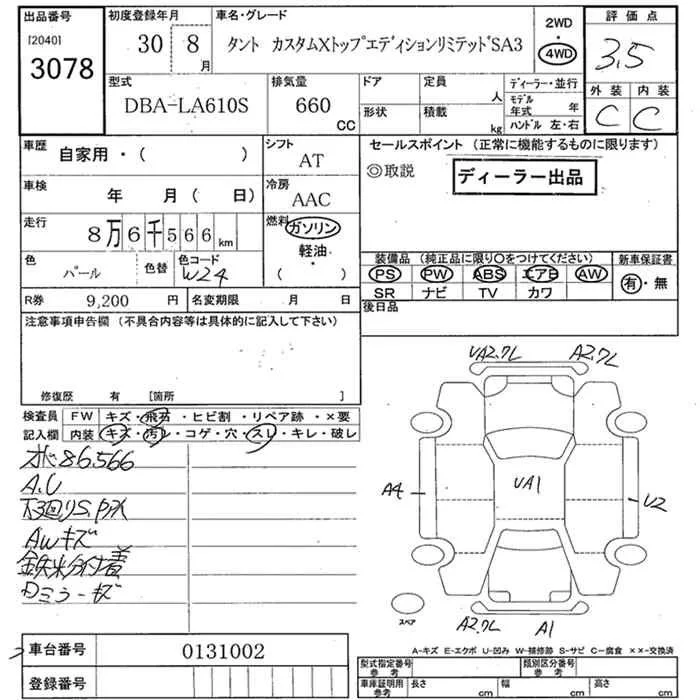 出品番号 初度登録年月 車名・グレード 2WD・4WD 評価点
[2040] 3078 30 8月 タント カスタムXトップエディションリミテッドSA3 3.5
型式 排気量 ドア 定員 人 ディーラー・並行 外装 内装
DBA-LA610S 660 CC 形状 積載 kg モデル年式 年 C C
ハンドル 左・右
車歴 自家用・( ) シフト AT セールスポイント (正常に機能するものに限ります)
◎取説 ディーラー出品
車検 年 月( 日) 冷房 AAC
走行 8万6千566km 燃料 ガソリン
軽油・
( )
色 パール 色替 色コード W24 装備品 (純正品に限り○をつけてください) 新車保証書
PS PW ABS エアB AW 有・無
R券 9,200 円 名変期限 月 日 SR ナビ TV カワ
注意事項申告欄 (不具合内容等は具体的に記入して下さい) 後日品
修復歴 有 [箇所 ]
検査員 FW キズ・飛石・ヒビ割・リペア跡・×要
記入欄 内装 キズ・汚レ・コゲ・穴・スレ・キレ・破レ
86,566
A.U
下廻りS.
AWキズ
鉄粉付着
Dミラーキズ
UA2.7L A2.7L
A4 UA1 U2
スペア
A2.7L A1
A-キズ E-エクボ U-凹み W-補修跡 S-サビ C-腐食 ××-交換済
車台番号 0131002
登録番号
型式指定番号 参考 類別区分番号 参考
車庫証明用 参考 長さ cm 幅 cm 高さ cm